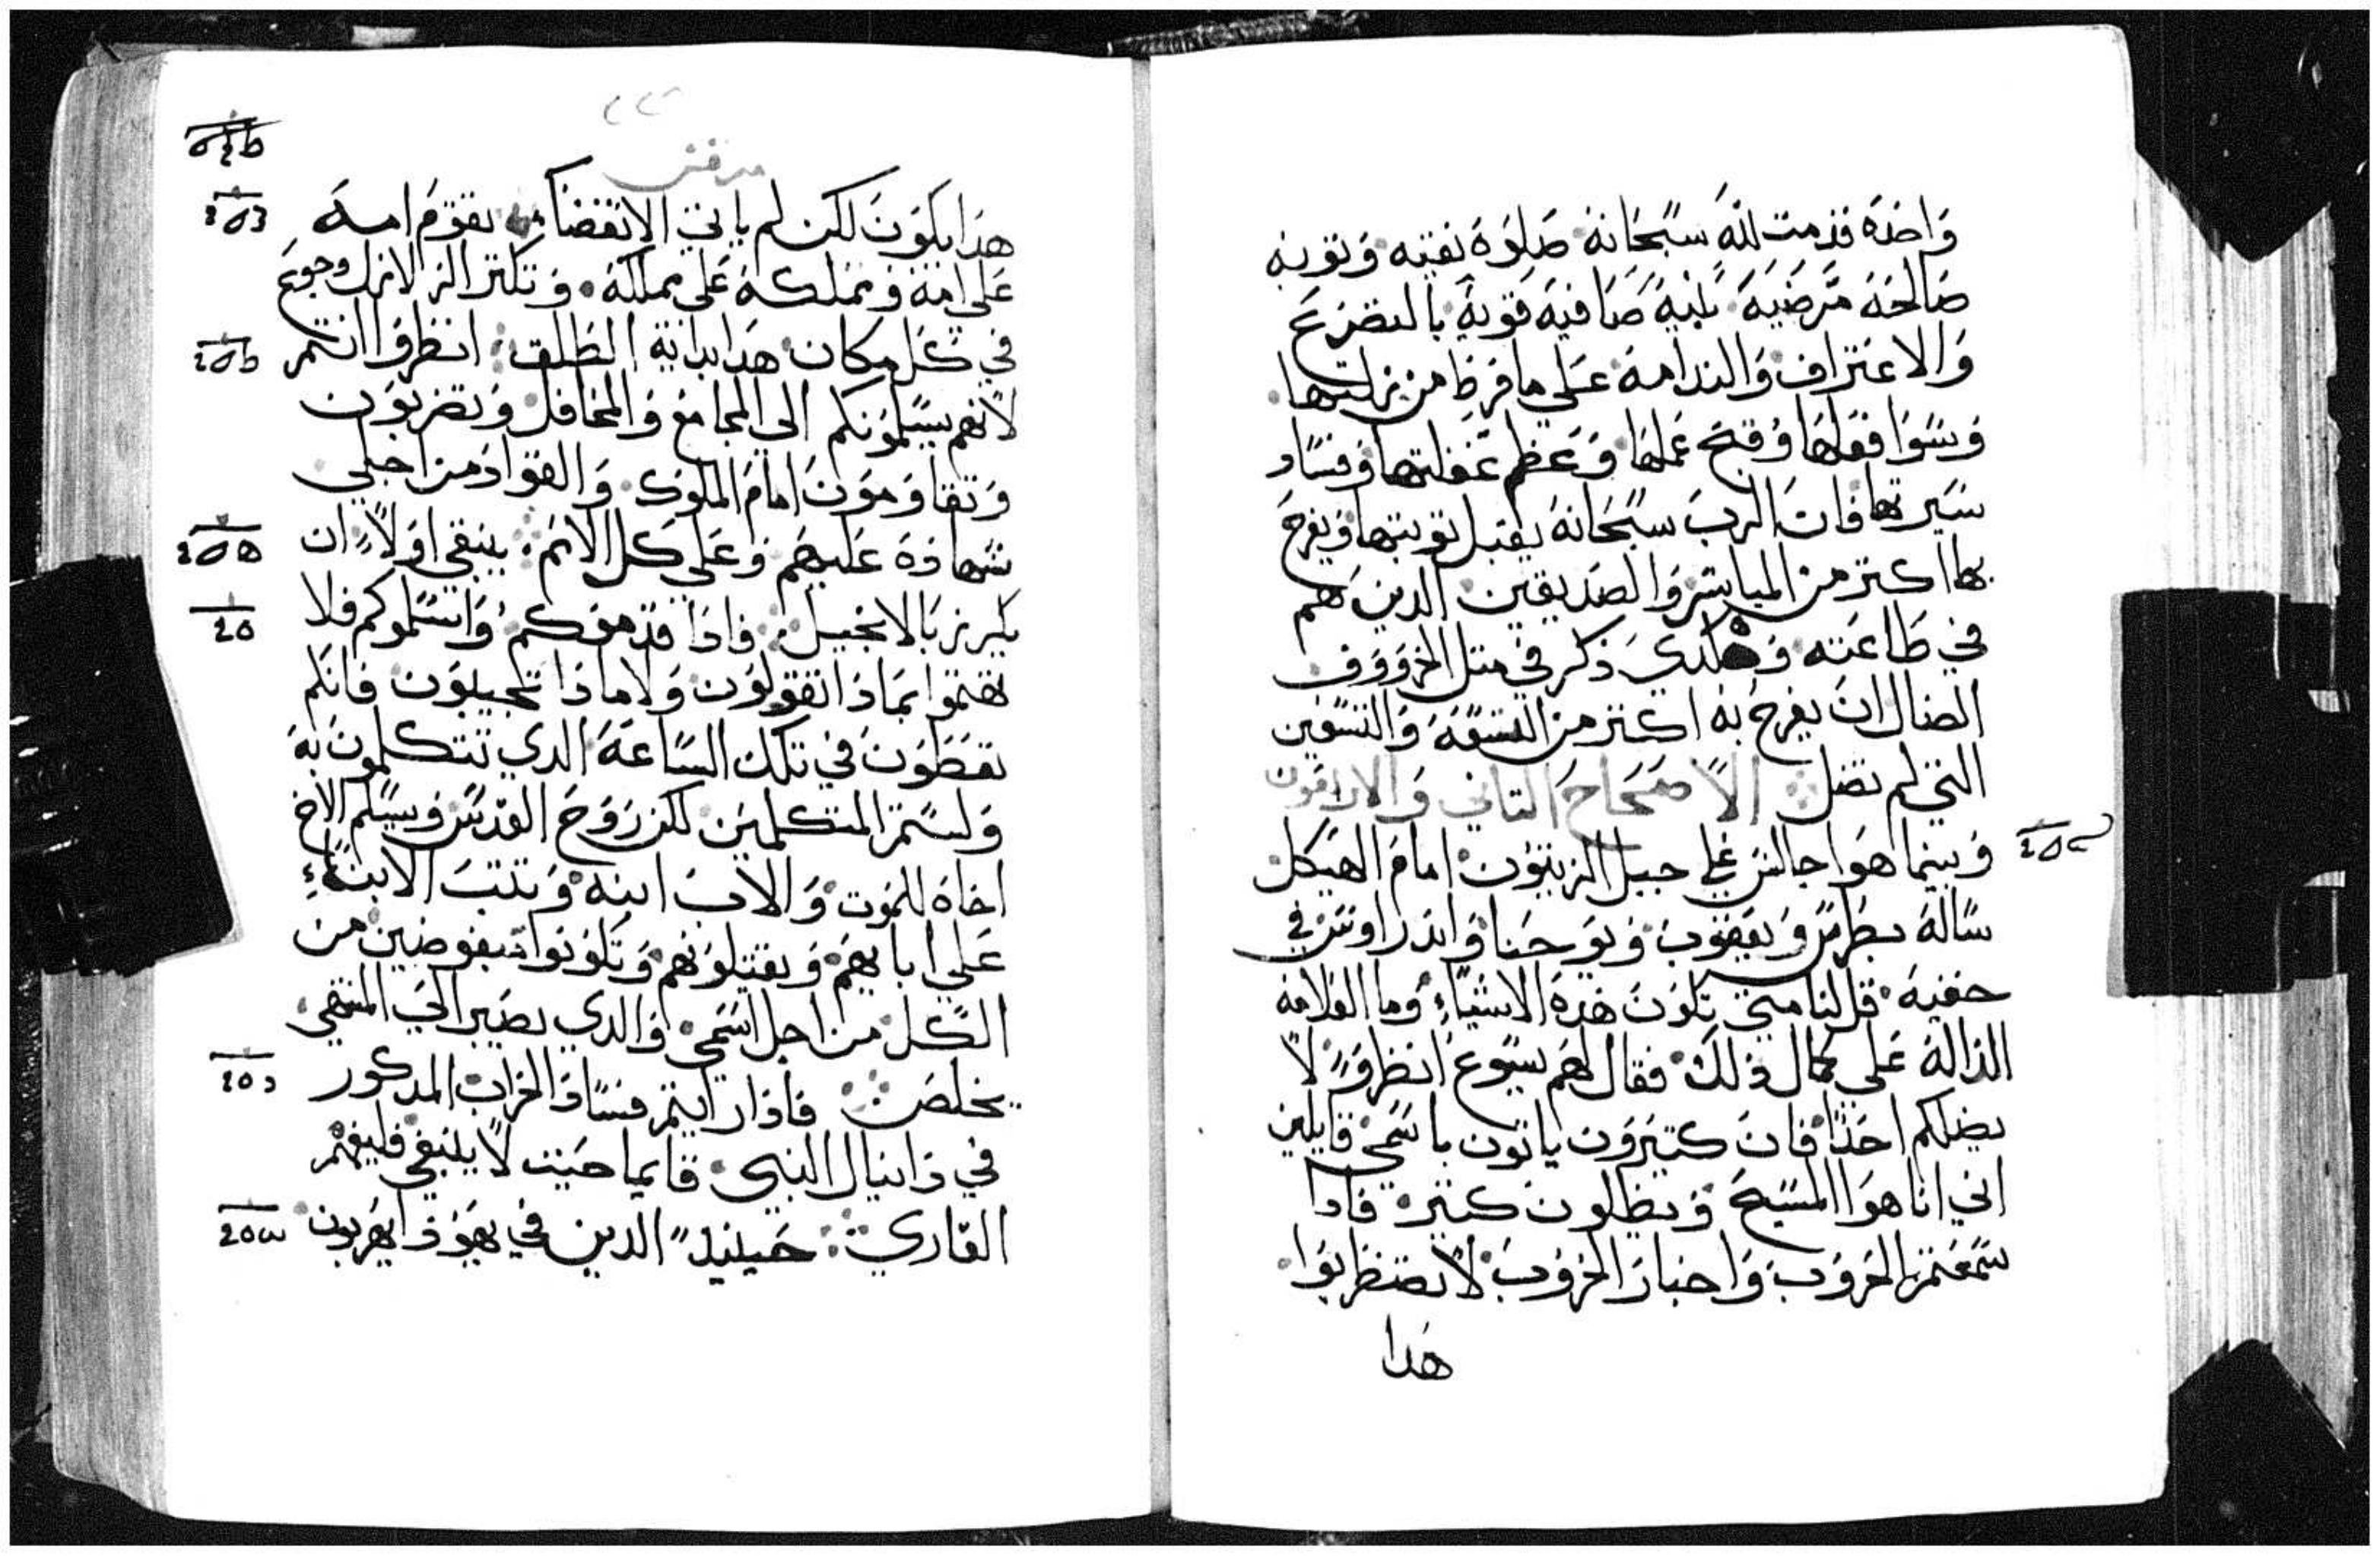 واحده قدمت لله سبحانه صلوه نقيه وتوبه
صالحه مرضيه بنيه صافيه قويه بالتضرع
والاعتراف والندامه علي ما فرط من زلتها
وسوا فعلها وقبح عملها وعظم غفلتها وفساد
سيرتها فان الرب سبحانه يقبل توبتها ويفرح
بها اكتر من المباشر والصديقين الدين هم
في طاعته وهكدي ذكر في متل الخروف
الضال ان يفرح به اكتر من التسعه والتسعين
التي لم تضل الاصحاح التاني والاربعون
وبينما هوا جالس علي جبل الزيتون امام الهيكل
ساله بطرس ويعقوب ويوحنا واندراوس في
خفيه قل لنا متي تكون هذه الاشياء وما العلامه
الداله علي كمال ذلك فقال لهم يسوع انظروا لا
يضلكم احدا فان كتيرون ياتون باسمي قايلين
اني انا هوا المسيح ويظلون كتير فادا
سمعتم الحروب واخبار الحروب لا تضطربوا
هدا
مرقس
هدا يكون لكن لم ياتي الانقضاء تقوم امه
علي امه ومملكه علي مملكه وتكتر الزلازل وجوع
في كل مكان هدا بداية الطلق انظروا انتم
لانهم يسلمونكم الي المجامع والمحافل وتضربون
وتقاومون امام الملوك والقواد من اجلي
شهاده عليهم وعلي كل الامم ينبغي اولا ان
يكرز بالانجيل فادا قدموكم واسلموكم فلا
تهتموا بماذا تقولون ولا ماذا تجيبون فانكم
تعطون في تلك الساعه الدي تتكلمون به
ولستم المتكلمين لكن روح القدس ويسلم الاخ
اخاه للموت والاب ابنه وتتب الابناء
علي ابايهم ويقتلونهم وتكونوا مبغوضين من
الكل من اجل اسمي والدي يصبر الي المنتهي
يخلص فاذا رايتم فساد الخراب المدكور
في دانيال النبي قايما حيت لا ينبغي فليفهم
القاري حينيد الدين في يهودا يهربون